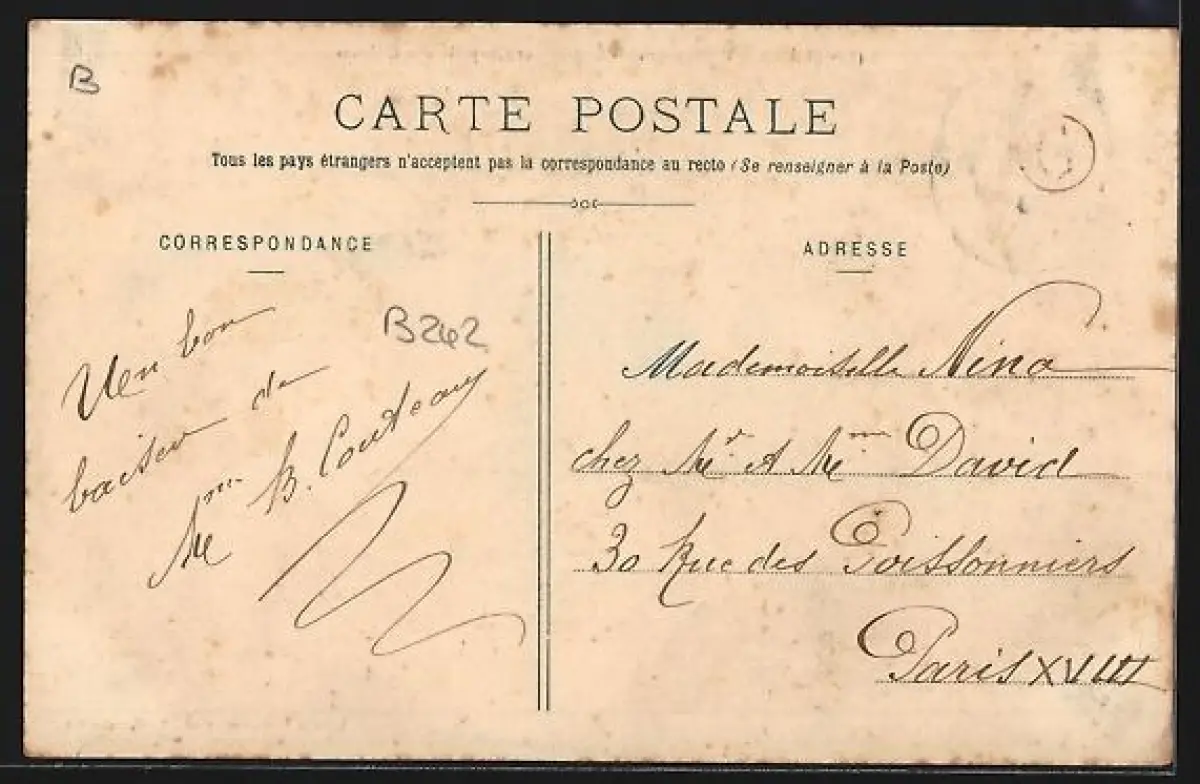 B
CARTE POSTALE
Tous les pays étrangers n'acceptent pas la correspondance au recto (Se renseigner à la Poste)
CORRESPONDANCE
Un bon
baiser de
Mme B. Couteaux
B242
ADRESSE
Mademoiselle Nina
chez Mr et Mme David
30 Rue des Poissonniers
Paris XVIII